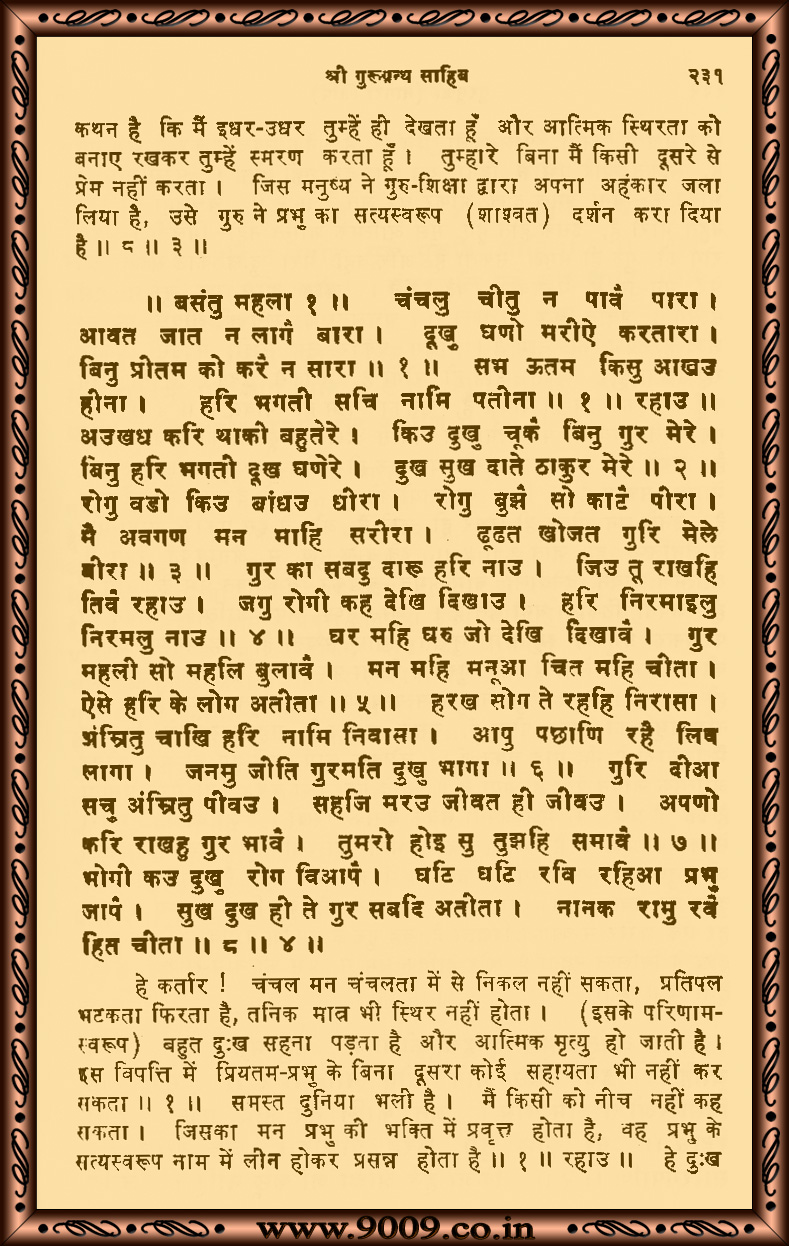 श्री गुरूग्रन्थ साहिब २३१
कथन है कि मैं इधर-उधर तुम्हें ही देखता हूँ और आत्मिक स्थिरता को
बनाए रखकर तुम्हें स्मरण करता हूँ । तुम्हारे बिना मैं किसी दूसरे से
प्रेम नहीं करता । जिस मनुष्य ने गुरु-शिक्षा द्वारा अपना अहंकार जला
लिया है, उसे गुरु ने प्रभु का सत्यस्वरूप (शाश्वत) दर्शन करा दिया
है ॥ ८ ॥ ३ ॥
॥ बसंतु महला १ ॥ चंचलु चीतु न पावै पारा ।
आवत जात न लागै बारा । दूखु घणो मरीऐ करतारा ।
बिनु प्रीतम को करै न सारा ॥ १ ॥ सभ ऊतम किसु आखउ
हीना । हरि भगती सचि नामि पतीना ॥ १ ॥ रहाउ ॥
अउखध करि थाकी बहुतेरे । किउ दुखु चूकै बिनु गुर मेरे ।
बिनु हरि भगती दूख घणेरे । दुख सुख दाते ठाकुर मेरे ॥ २ ॥
रोगु वडो किउ बांधउ धीरा । रोगु बुझै सो काटै पीरा ।
मै अवगण मन माहि सरीरा । ढूढत खोजत गुरि मेले
बीरा ॥ ३ ॥ गुर का सबदु दारू हरि नाउ । जिउ तू राखहि
तिवै रहाउ । जगु रोगी कह देखि दिखाउ । हरि निरमाइलु
निरमलु नाउ ॥ ४ ॥ घर महि घरु जो देखि दिखावै । गुर
महली सो महलि बुलावै । मन महि मनूआ चित महि चीता ।
ऐसे हरि के लोग अतीता ॥ ५ ॥ हरख सोग ते रहहि निरासा ।
अंम्रितु चाखि हरि नामि निवासा । आपु पछाणि रहै लिव
लागा । जनमु जीति गुरमति दुखु भागा ॥ ६ ॥ गुरि दीआ
सचु अंम्रितु पीवउ । सहजि मरउ जीवत ही जीवउ । अपणो
करि राखहु गुर भावै । तुमरो होइ सु तुझहि समावै ॥ ७ ॥
भोगी कउ दुखु रोग विआपै । घटि घटि रवि रहिआ प्रभु
जापै । सुख दुख ही ते गुर सबदि अतीता । नानक रामु रवै
हित चीता ॥ ८ ॥ ४ ॥
हे कर्तार ! चंचल मन चंचलता में से निकल नहीं सकता, प्रतिपल
भटकता फिरता है, तनिक मात्र भी स्थिर नहीं होता । (इसके परिणाम-
स्वरूप) बहुत दुःख सहना पड़ता है और आत्मिक मृत्यु हो जाती है ।
इस विपत्ति में प्रियतम-प्रभु के बिना दूसरा कोई सहायता भी नहीं कर
सकता ॥ १ ॥ समस्त दुनिया भली है । मैं किसी को नीच नहीं कह
सकता । जिसका मन प्रभु की भक्ति में प्रवृत्त होता है, वह प्रभु के
सत्यस्वरूप नाम में लीन होकर प्रसन्न होता है ॥ १ ॥ रहाउ ॥ हे दुःख
www.9009.co.in